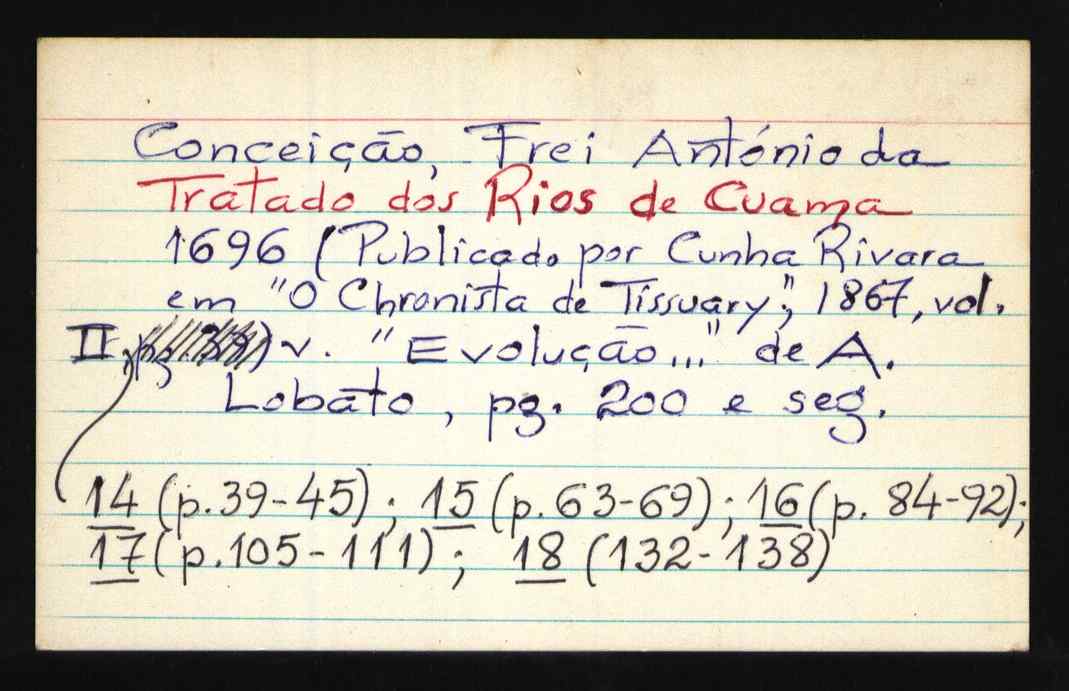 Conceição, Frei António da
Tratado dos Rios de Cuama
1696 (Publicado por Cunha Rivara
em "O Chronista de Tissuary", 1867, vol.
II, v. "Evolução..." de A.
Lobato, pg. 200 e seg.
14 (p.39-45); 15 (p.63-69); 16 (p. 84-92);
17 (p.105-111); 18 (132-138)